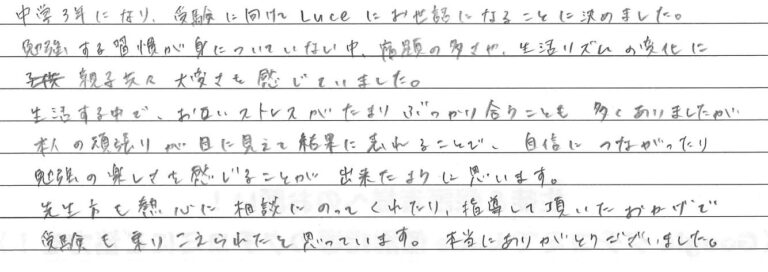 中学3年になり、受験に向けてLuceにお世話になることに決めました。
勉強する習慣が身についていない中、宿題の多さや、生活リズムの変化に
親子共々大変さも感じていました。
生活する中で、お互いストレスがたまりぶつかり合うことも多くありましたが
本人の頑張りが目に見えて結果に表れることで、自信につながったり
勉強の楽しさも感じることが出来たように思います。
先生方も熱心に相談にのってくれたり、指導して頂いたおかげで
受験も乗りこえられたと思っています。本当にありがとうございました。